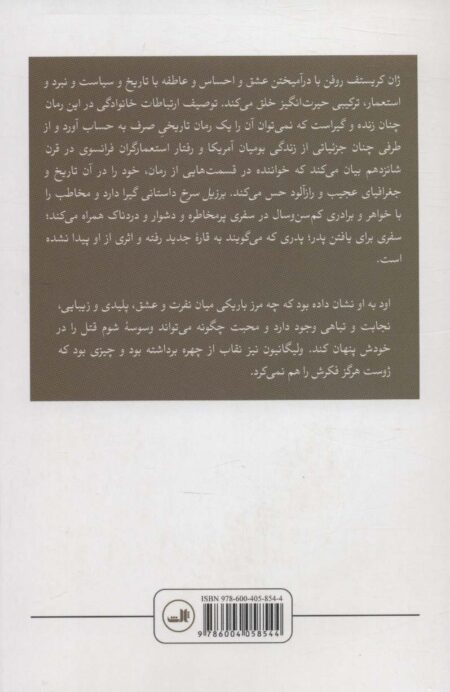 ژان کریستف روفن با درآمیختن عشق و احساس و عاطفه با تاریخ و سیاست و نبرد و
استعمار، ترکیبی حیرت‌انگیز خلق می‌کند. توصیف ارتباطات خانوادگی در این رمان
چنان زنده و گیراست که نمی‌توان آن را یک رمان تاریخی صرف به حساب آورد و از
طرفی چنان جزئیاتی از زندگی بومیان آمریکا و رفتار استعمارگران فرانسوی در قرن
شانزدهم بیان می‌کند که خواننده در قسمت‌هایی از رمان، خود را در آن تاریخ و
جغرافیای عجیب و رازآلود حس می‌کند. برزیل سرخ داستانی گیرا دارد و مخاطب را
با خواهر و برادری کم‌سن‌وسال در سفری پرمخاطره و دشوار و دردناک همراه می‌کند؛
سفری برای یافتن پدر؛ پدری که می‌گویند به قارهٔ جدید رفته و اثری از او پیدا نشده
است.
اود به او نشان داده بود که چه مرز باریکی میان نفرت و عشق، پلیدی و زیبایی،
نجابت و تباهی وجود دارد و محبت چگونه می‌تواند وسوسهٔ شوم قتل را در
خودش پنهان کند. ولیگانیون نیز نقاب از چهره برداشته بود و چیزی بود که
ژوست هرگز فکرش را هم نمی‌کرد.
ISBN 978-600-405-854-4
ثالث
9 786004 058544